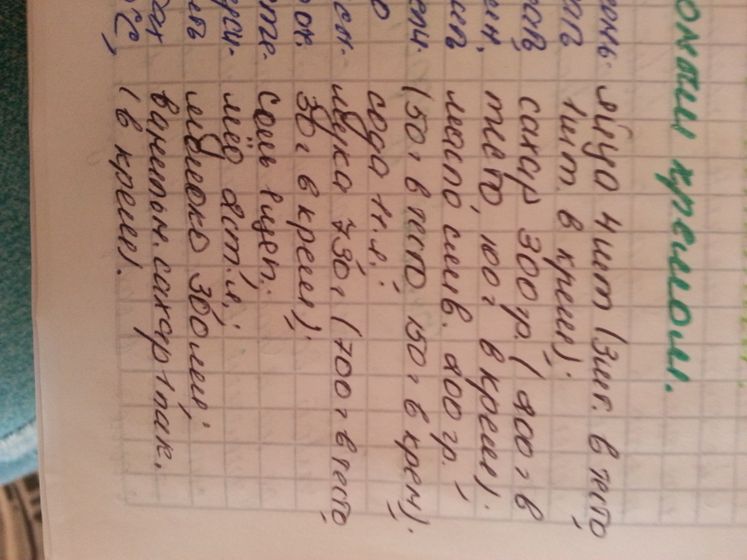 кремом.
яйцо 4шт (3шт. в тесто
1шт. в крем);
сахар 300гр. (200г в
тесто, 100г в крем).
масло слив. 200гр.
(50г в тесто 150г в крем).
сода 1ч.л;
мука 730г (700г в тесто
30г в крем);
соль 1щеп.
мёд 2ст.л.;
молоко 300мл;
ванильн. сахар 1пак.
(в крем).